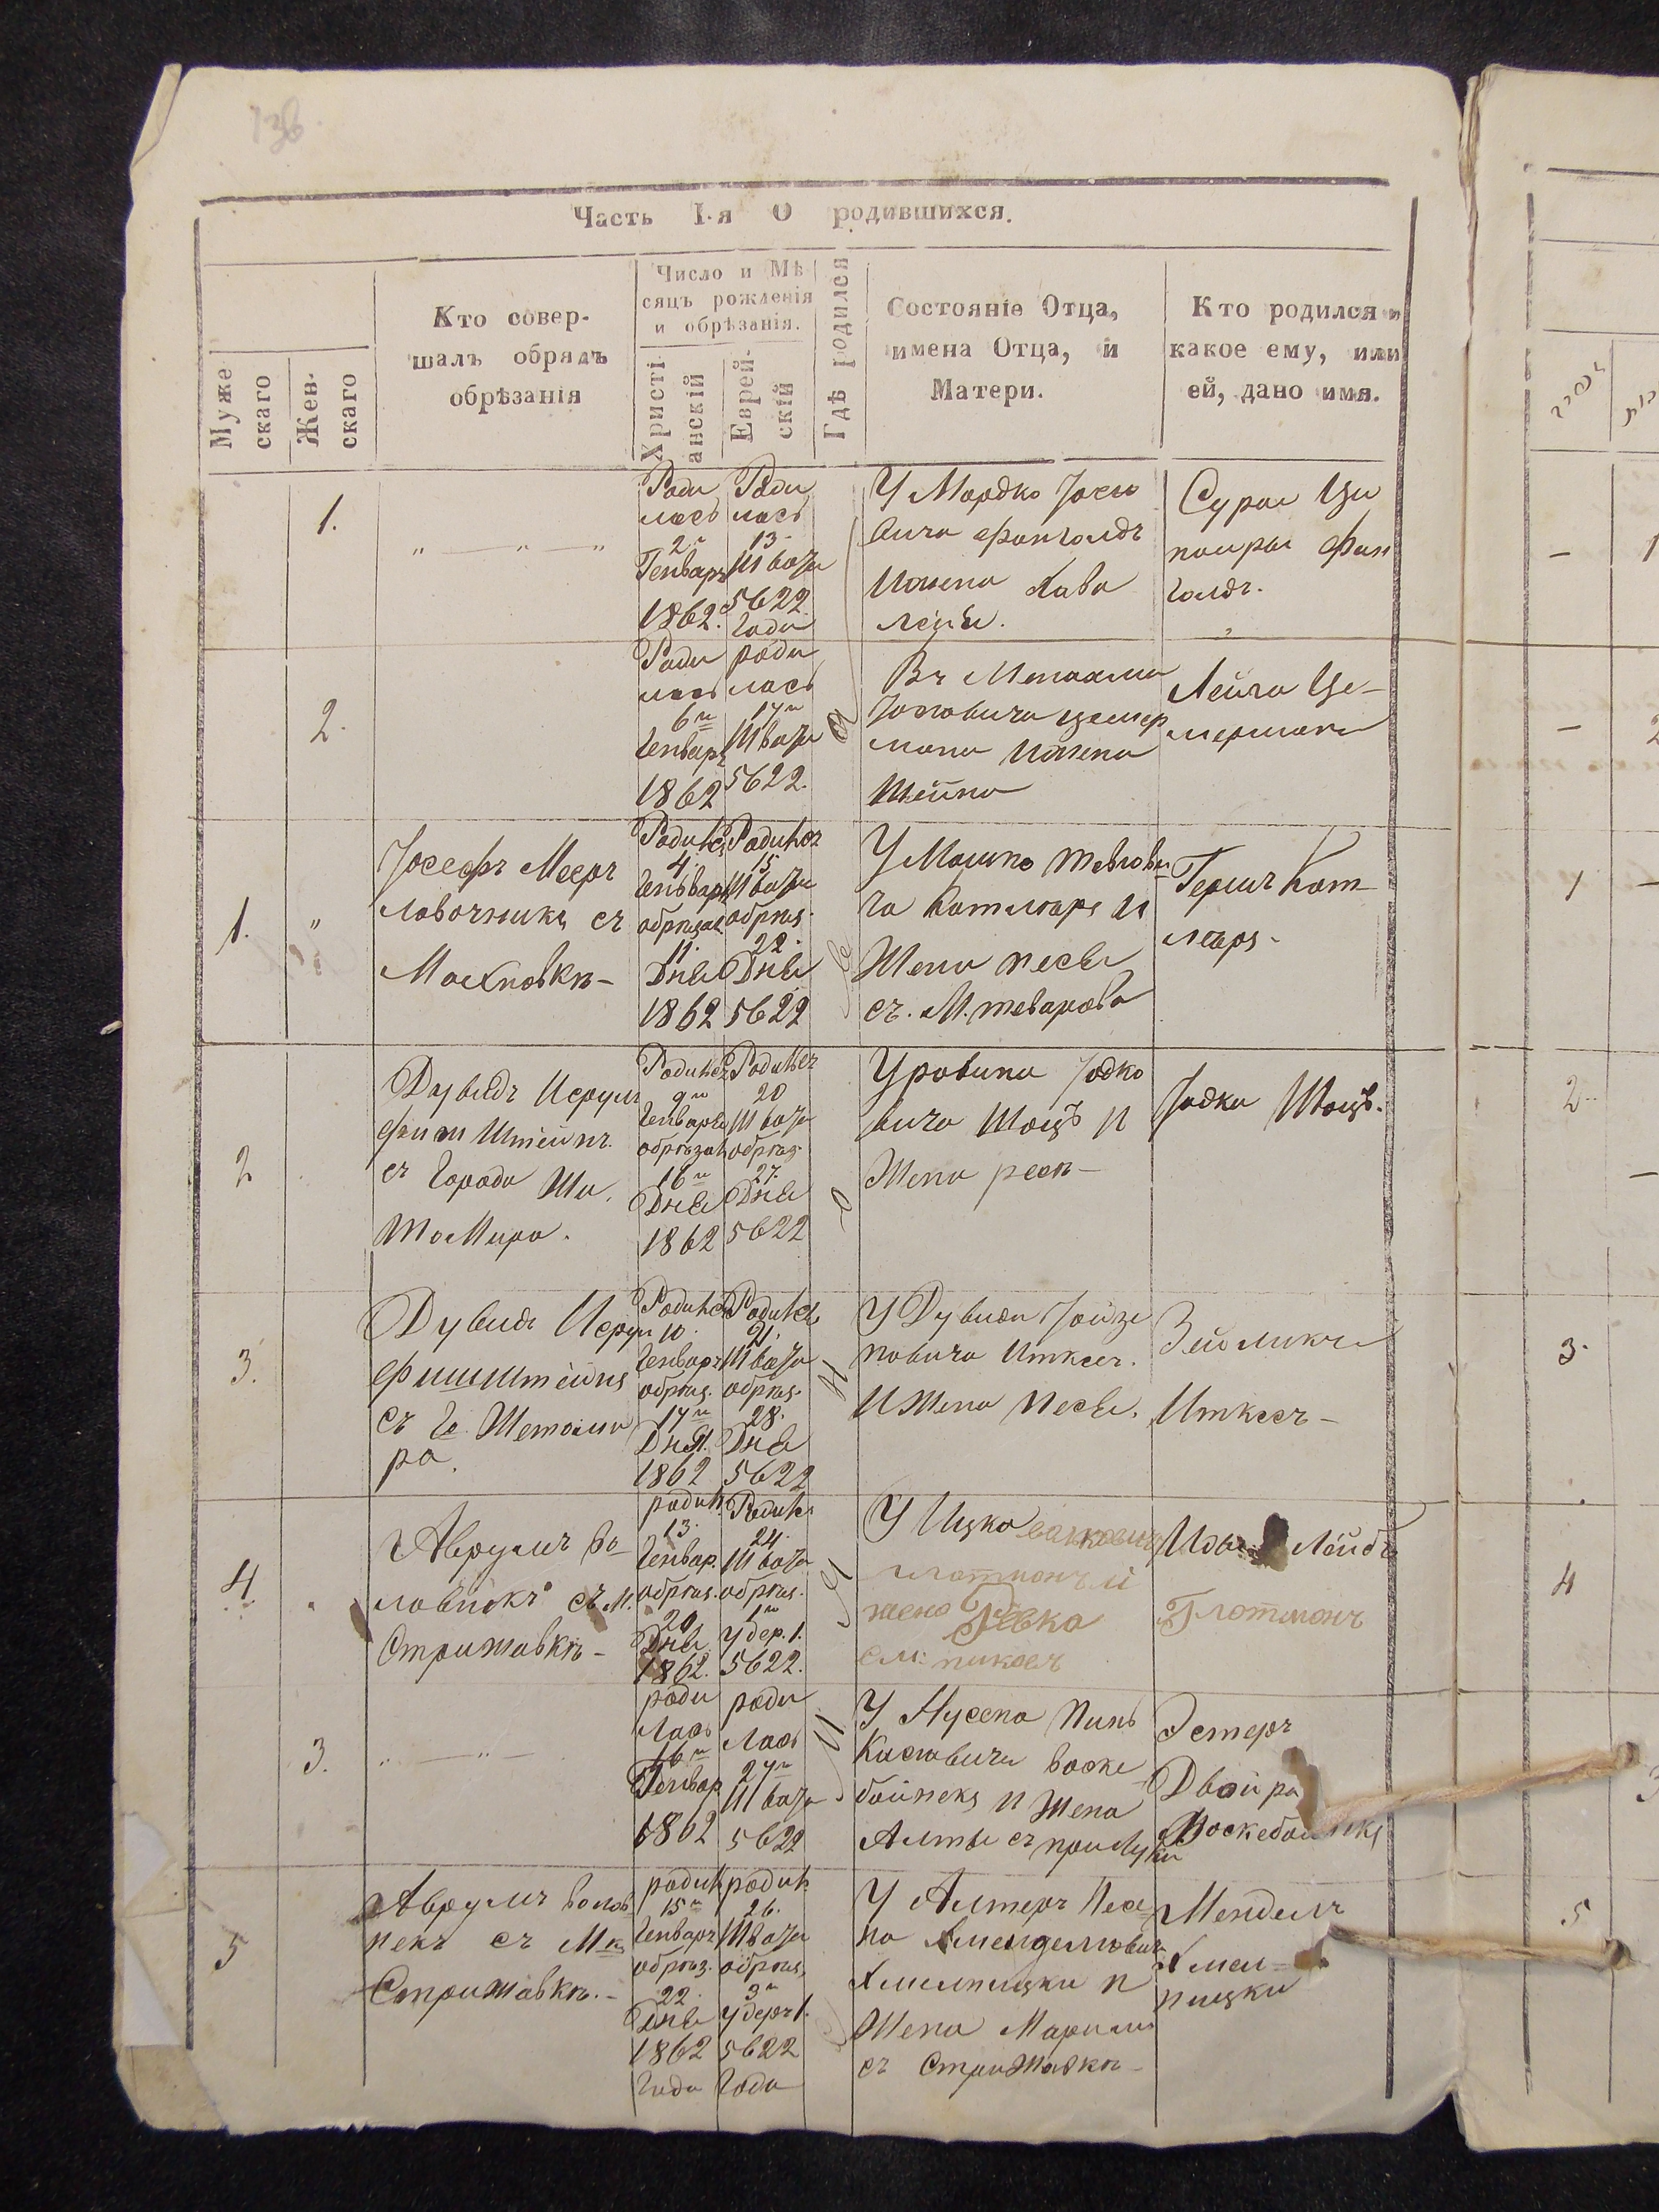 136
Часть I-я О родившихся.
Муже
скаго
Жен-
скаго
Кто совер-
шалъ обрядъ
обрѣзанія
Число и Мѣ
сяцъ рожденія
и обрѣзанія.
Христі
анскій
Еврей-
скій
Гдѣ родился
Состояніе Отца,
имена Отца, и
Матери.
Кто родился и
какое ему, или
ей, дано имя.
1.
" — " — "
Роди
лась
2
Генваръ
1862.
Роди
лась
13
Швата
5622
Года
У Мордко Іось
вича Фанголдъ
Ижена Хава
Леия.
Сура Ци
поиры Фан
голдъ.
2.
Роди
лась
6
Генваръ
1862
роди
лась
17
Швата
5622.
Въ Менахма
Іосовича Цемер
мана Ижена
Шейна
Лейча Це-
мермана
1.
"
Іосефъ Мееръ
Лавочника съ
Махновкѣ-
Родился
4.
Генваръ
обрѣзан
11.
Дня
1862
Родился
15
Швата
обрѣз.
22.
Дня
5622
У Мошко
ча Котляръ И
Жена песы
съ. М.
Гершъ Кот-
ляръ-
2
Дувидъ Исрул
фиш Штейнъ.
съ Города Жи.
Томира.
Родился
9
Генваря
обрѣзан
16
Дня
1862
Родился
20
Швата
обрѣз.
27.
Дня
5622
У ровина Іодко
вича Шоцъ И
Жена
Іодка Шоцъ.
3.
Дувидъ Исрул
фишштейнъ
съ Г. Жетоми
ра.
Родился
10.
Генваръ
обрѣз.
17
Дня.
1862
Родился
21.
Швата
обрѣз.
28.
Дня
5622
У Дувида Іойзе
повича Иткесъ.
И Жена Песы.
Зейликъ
Иткесъ-
4
Аврумъ Во-
ловникъ съ М.
Стрижавкѣ-
родил
13.
Генвар.
обрѣз.
20
Дня
1862.
Родилс
24.
Швата
обрѣз.
1
Удер. 1.
5622.
У Ицко
Глотманъ и
жена Ревка
Лейбъ
Глотманъ
3.
" — " —
роди
Лась
16
Генвар
1862
роди
Лась
27
Швата
5622
У Нусена Пинь
Касовича Воске
бойнекъ И Жена
Алты съ прилуки
Эстеръ
Двойра
Воскебойнекъ
5
Аврумъ Волов
некъ съ М
Стрижавкѣ.-
родил
15
Генваръ
обрѣз.
22.
Дня
1862
Года
родил
26.
Швата
обрѣз.
3
Удеръ 1.
5622
Года
У Алтеръ Песа
на Хменделовича
Хмелницки И
Жена Мариам
съ Стрижавкѣ-
Мендель
Хмел=
ницки
1
2
1
2
3.
4
5